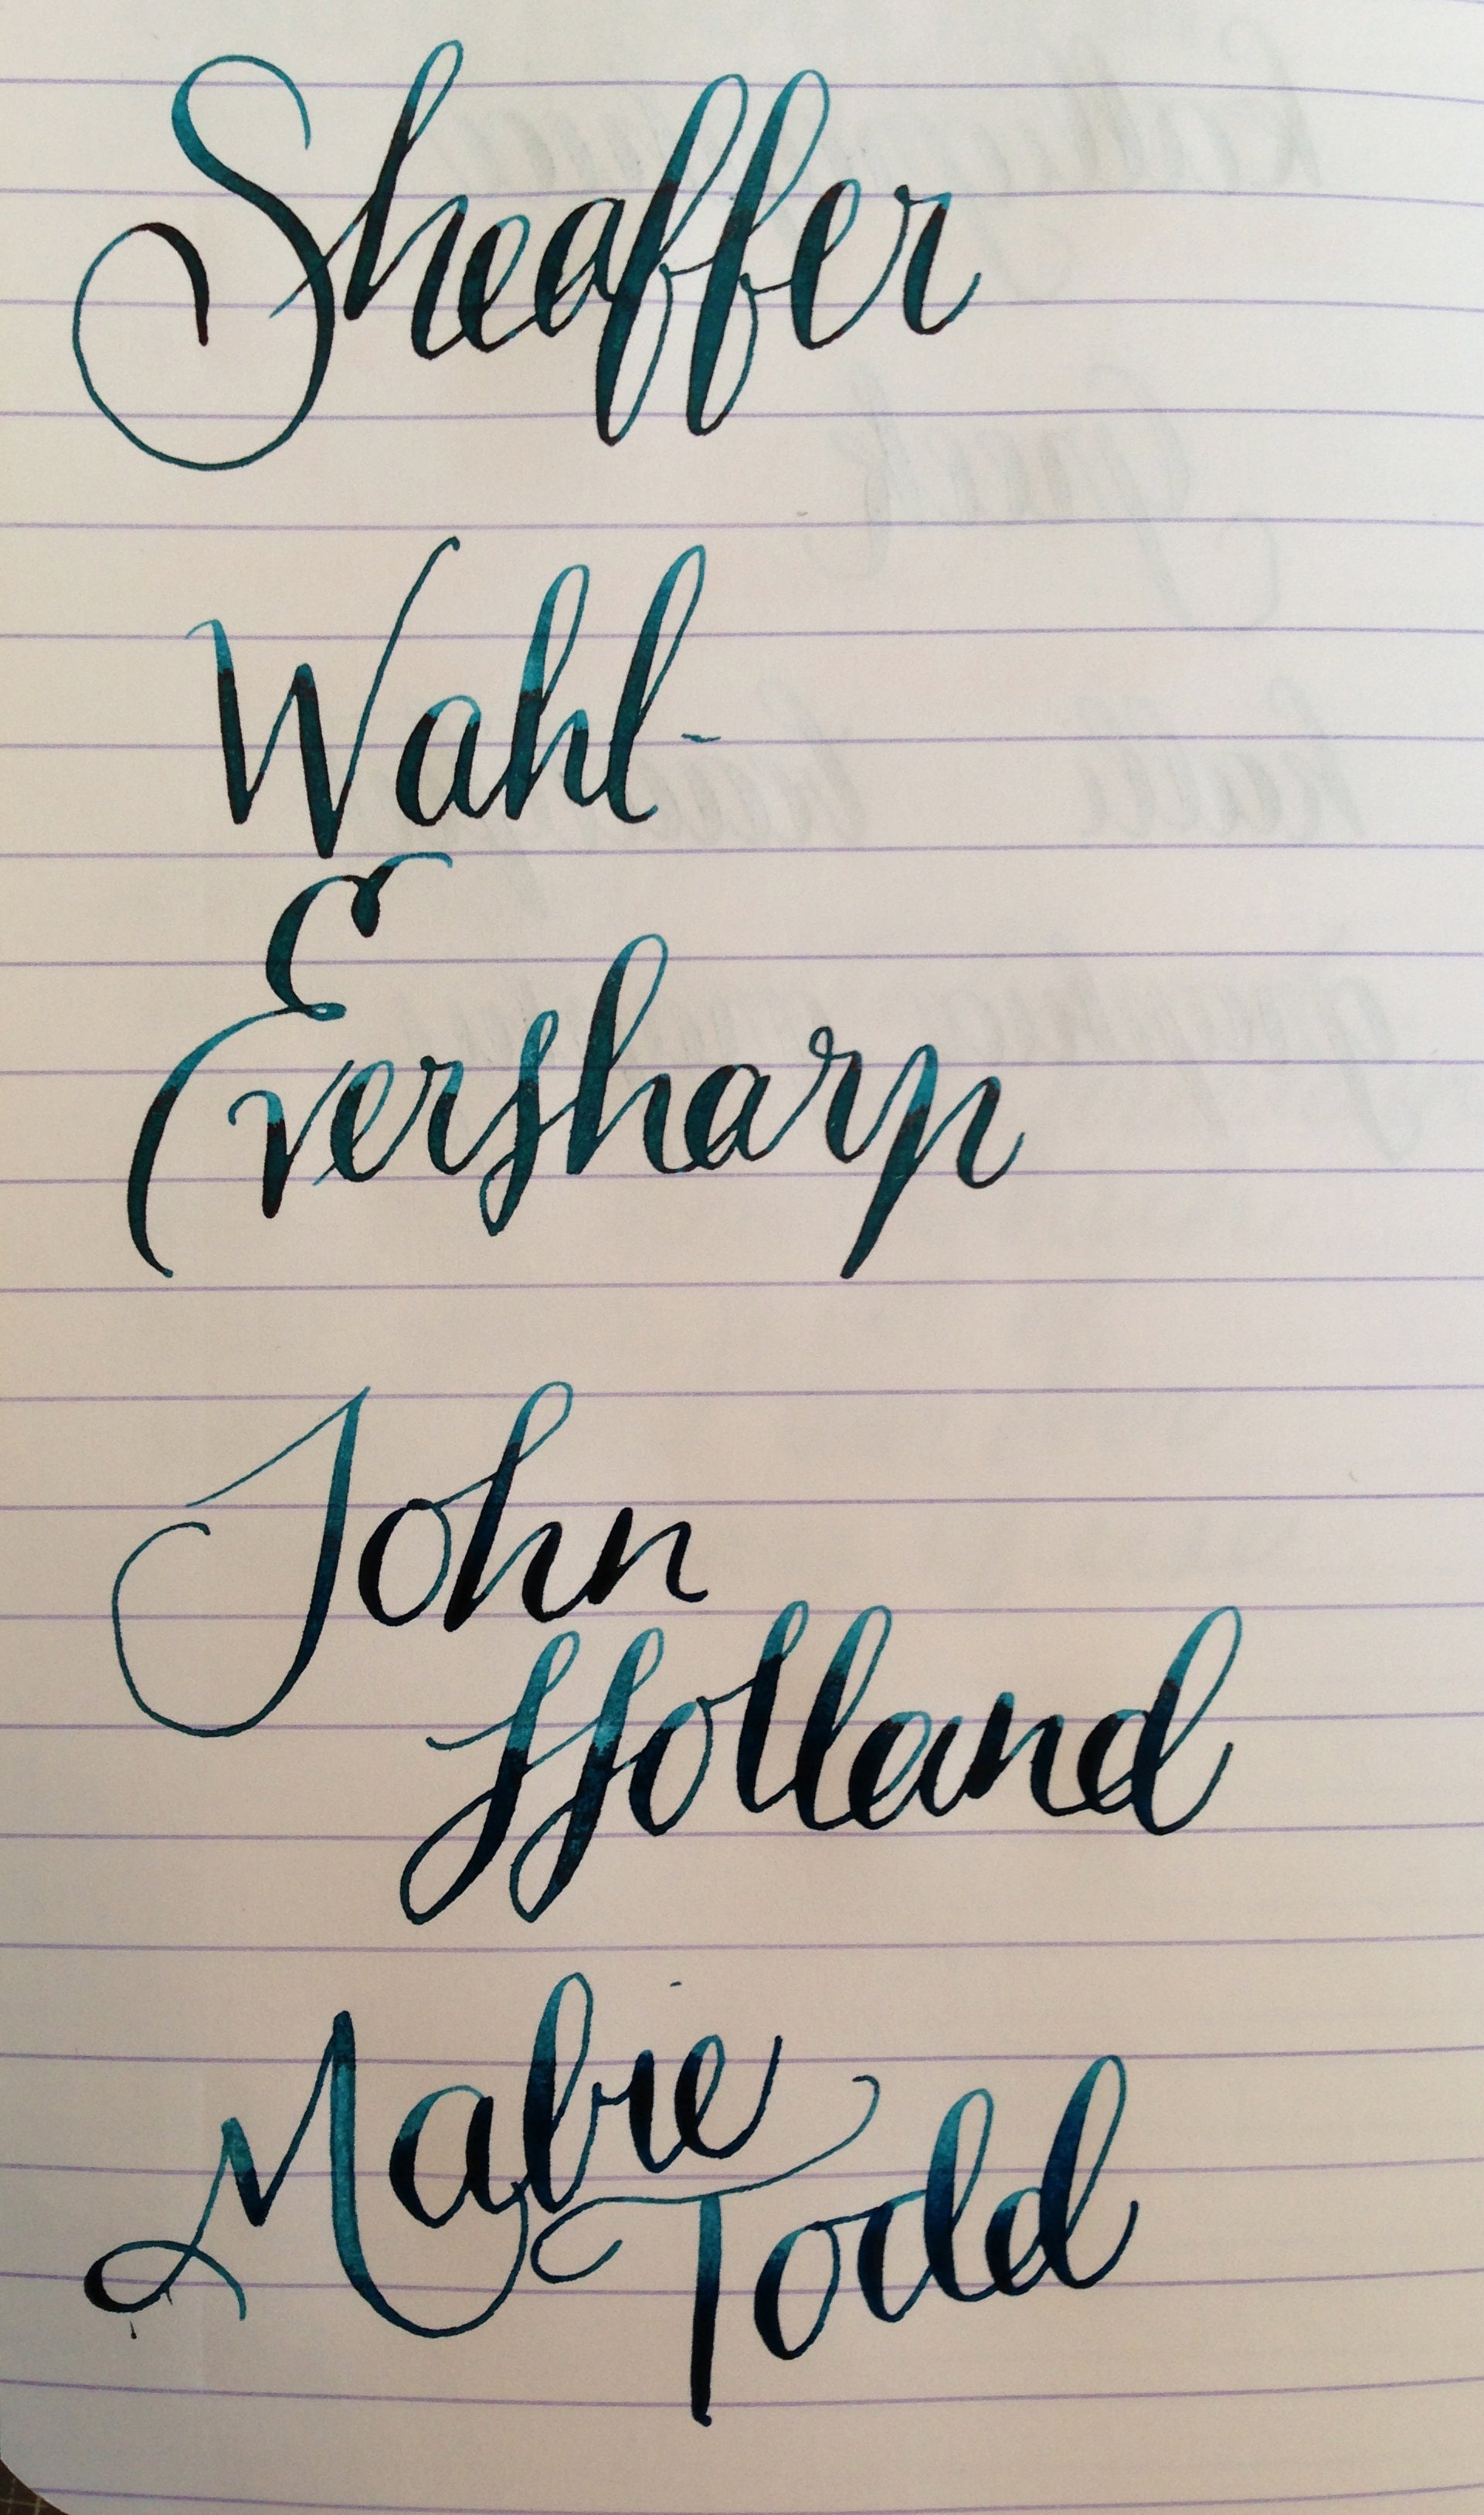 Sheaffer
Wahl-
Eversharp
John
Holland
Mabie
Todd